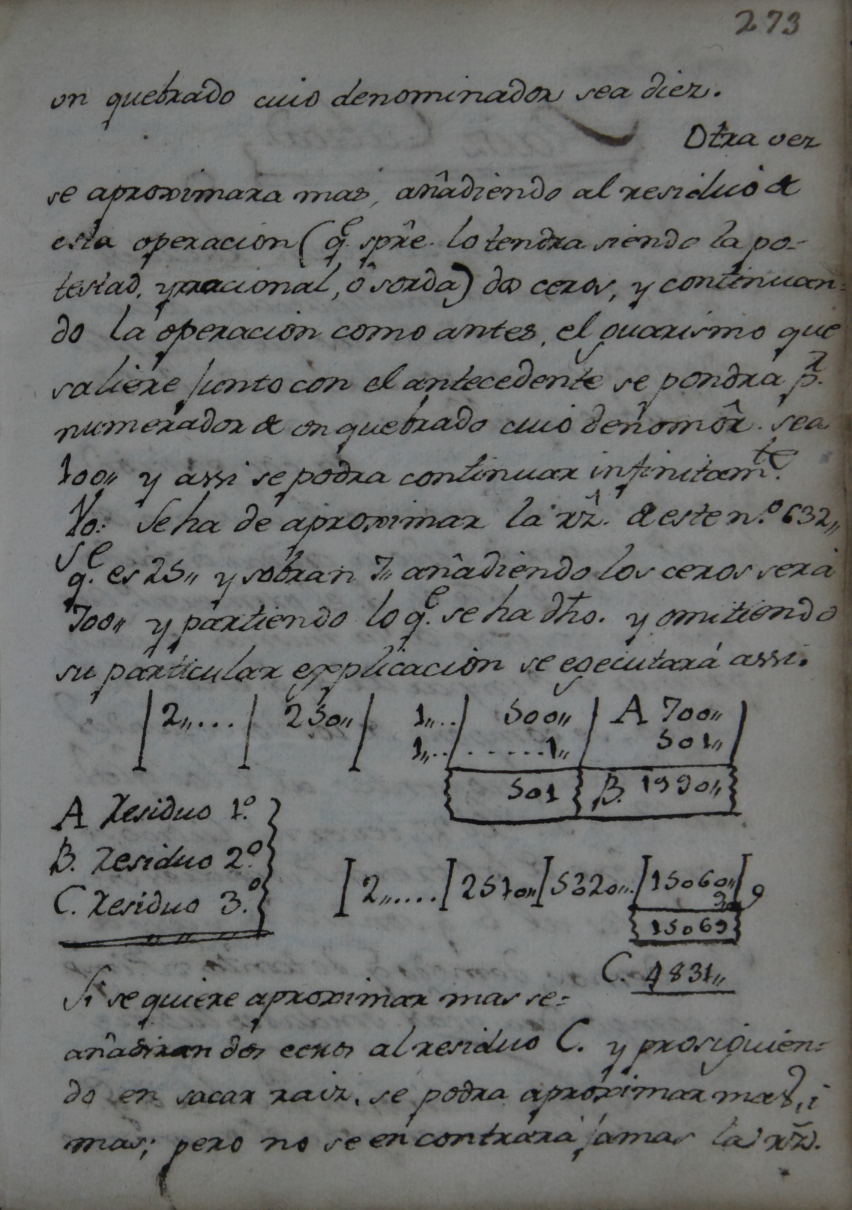 273
un quebrado cuio denominador sea diez.
Otra vez
se aproximara mas, añadiendo al residuo de
esta operacion (q.e spre. lo tendra siendo la po-
testad, yrracional, ô sorda) dos ceros, y continuan=
do la operacion como antes, el guarismo que
saliere junto con el antecedente se pondra p.r
numerador de un quebrado cuio denomôr. sea
100,, y assi se podra continuar infinitam.te
Yo: Se ha de aproximar la rz. de este n.o 632,,
q.e es 25,, y sobran 7,, añadiendo los ceros será
700,, y partiendo lo q.e se ha dho. y omitiendo
su particular explicacion se egecutará assi.
2,,... 250,, 1,,.. 500,, A 700,,
1,,.......1,, 501,,
501 B. 19900,,
A Residuo 1.o
B. Residuo 2.o
C. Residuo 3.o
2,,..... 2510,, 5020,,.. 15060,, 9
9,,
15069
C. 4831,,
Si se quiere aproximar mas se=
añadiran dos ceros al residuo C. y prosiguien=
do en sacar raiz, se podra aproximar mas, i
mas; pero no se encontrará jamas la rz.